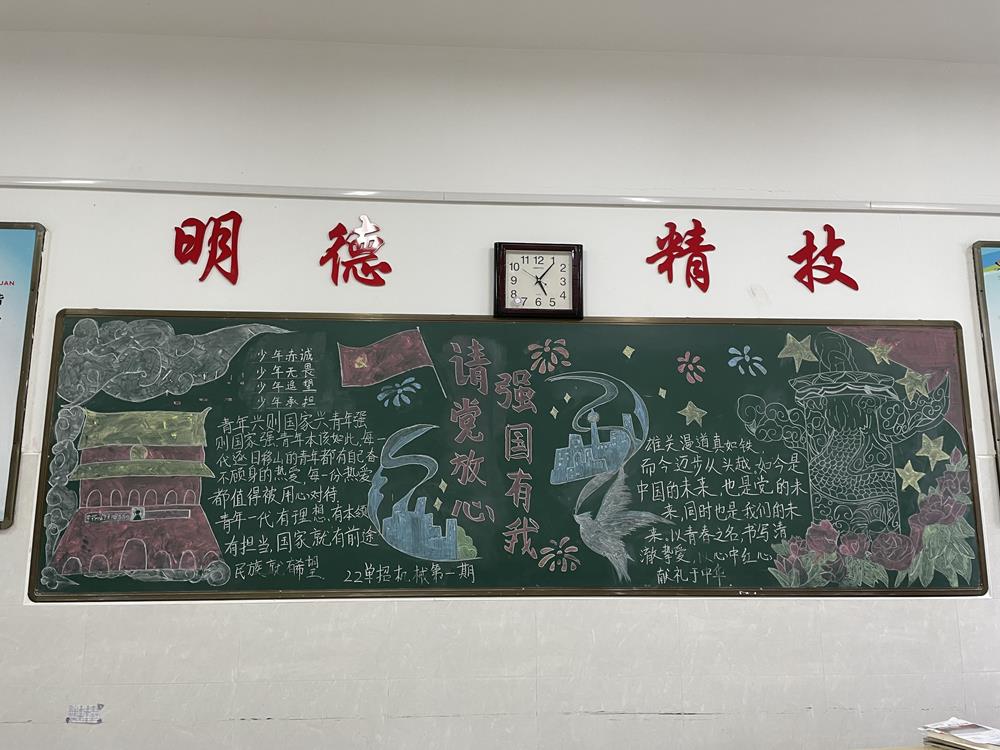 明德 精技
12
11
1
10
2
9
3
8
4
7
6
5
少年赤诚
少年无畏
少年遥望
少年承担
青年兴则国家兴青年强
则国家强青年本该如此,每一
代逐日移山的青年都有自己奋
不顾身的热爱,每一份热爱
都值得被用心对待.
青年一代有理想,有本领
有担当,国家就有前途
民族就有希望
22单招机械第一期
请党放心
强国有我
雄关漫道真如铁,
而今迈步从头越,如今是
中国的未来,也是党的未
来,同时也是我们的未
来,以青春之名书写清
澈挚爱,以心中红心,
献礼于中华.
UAN